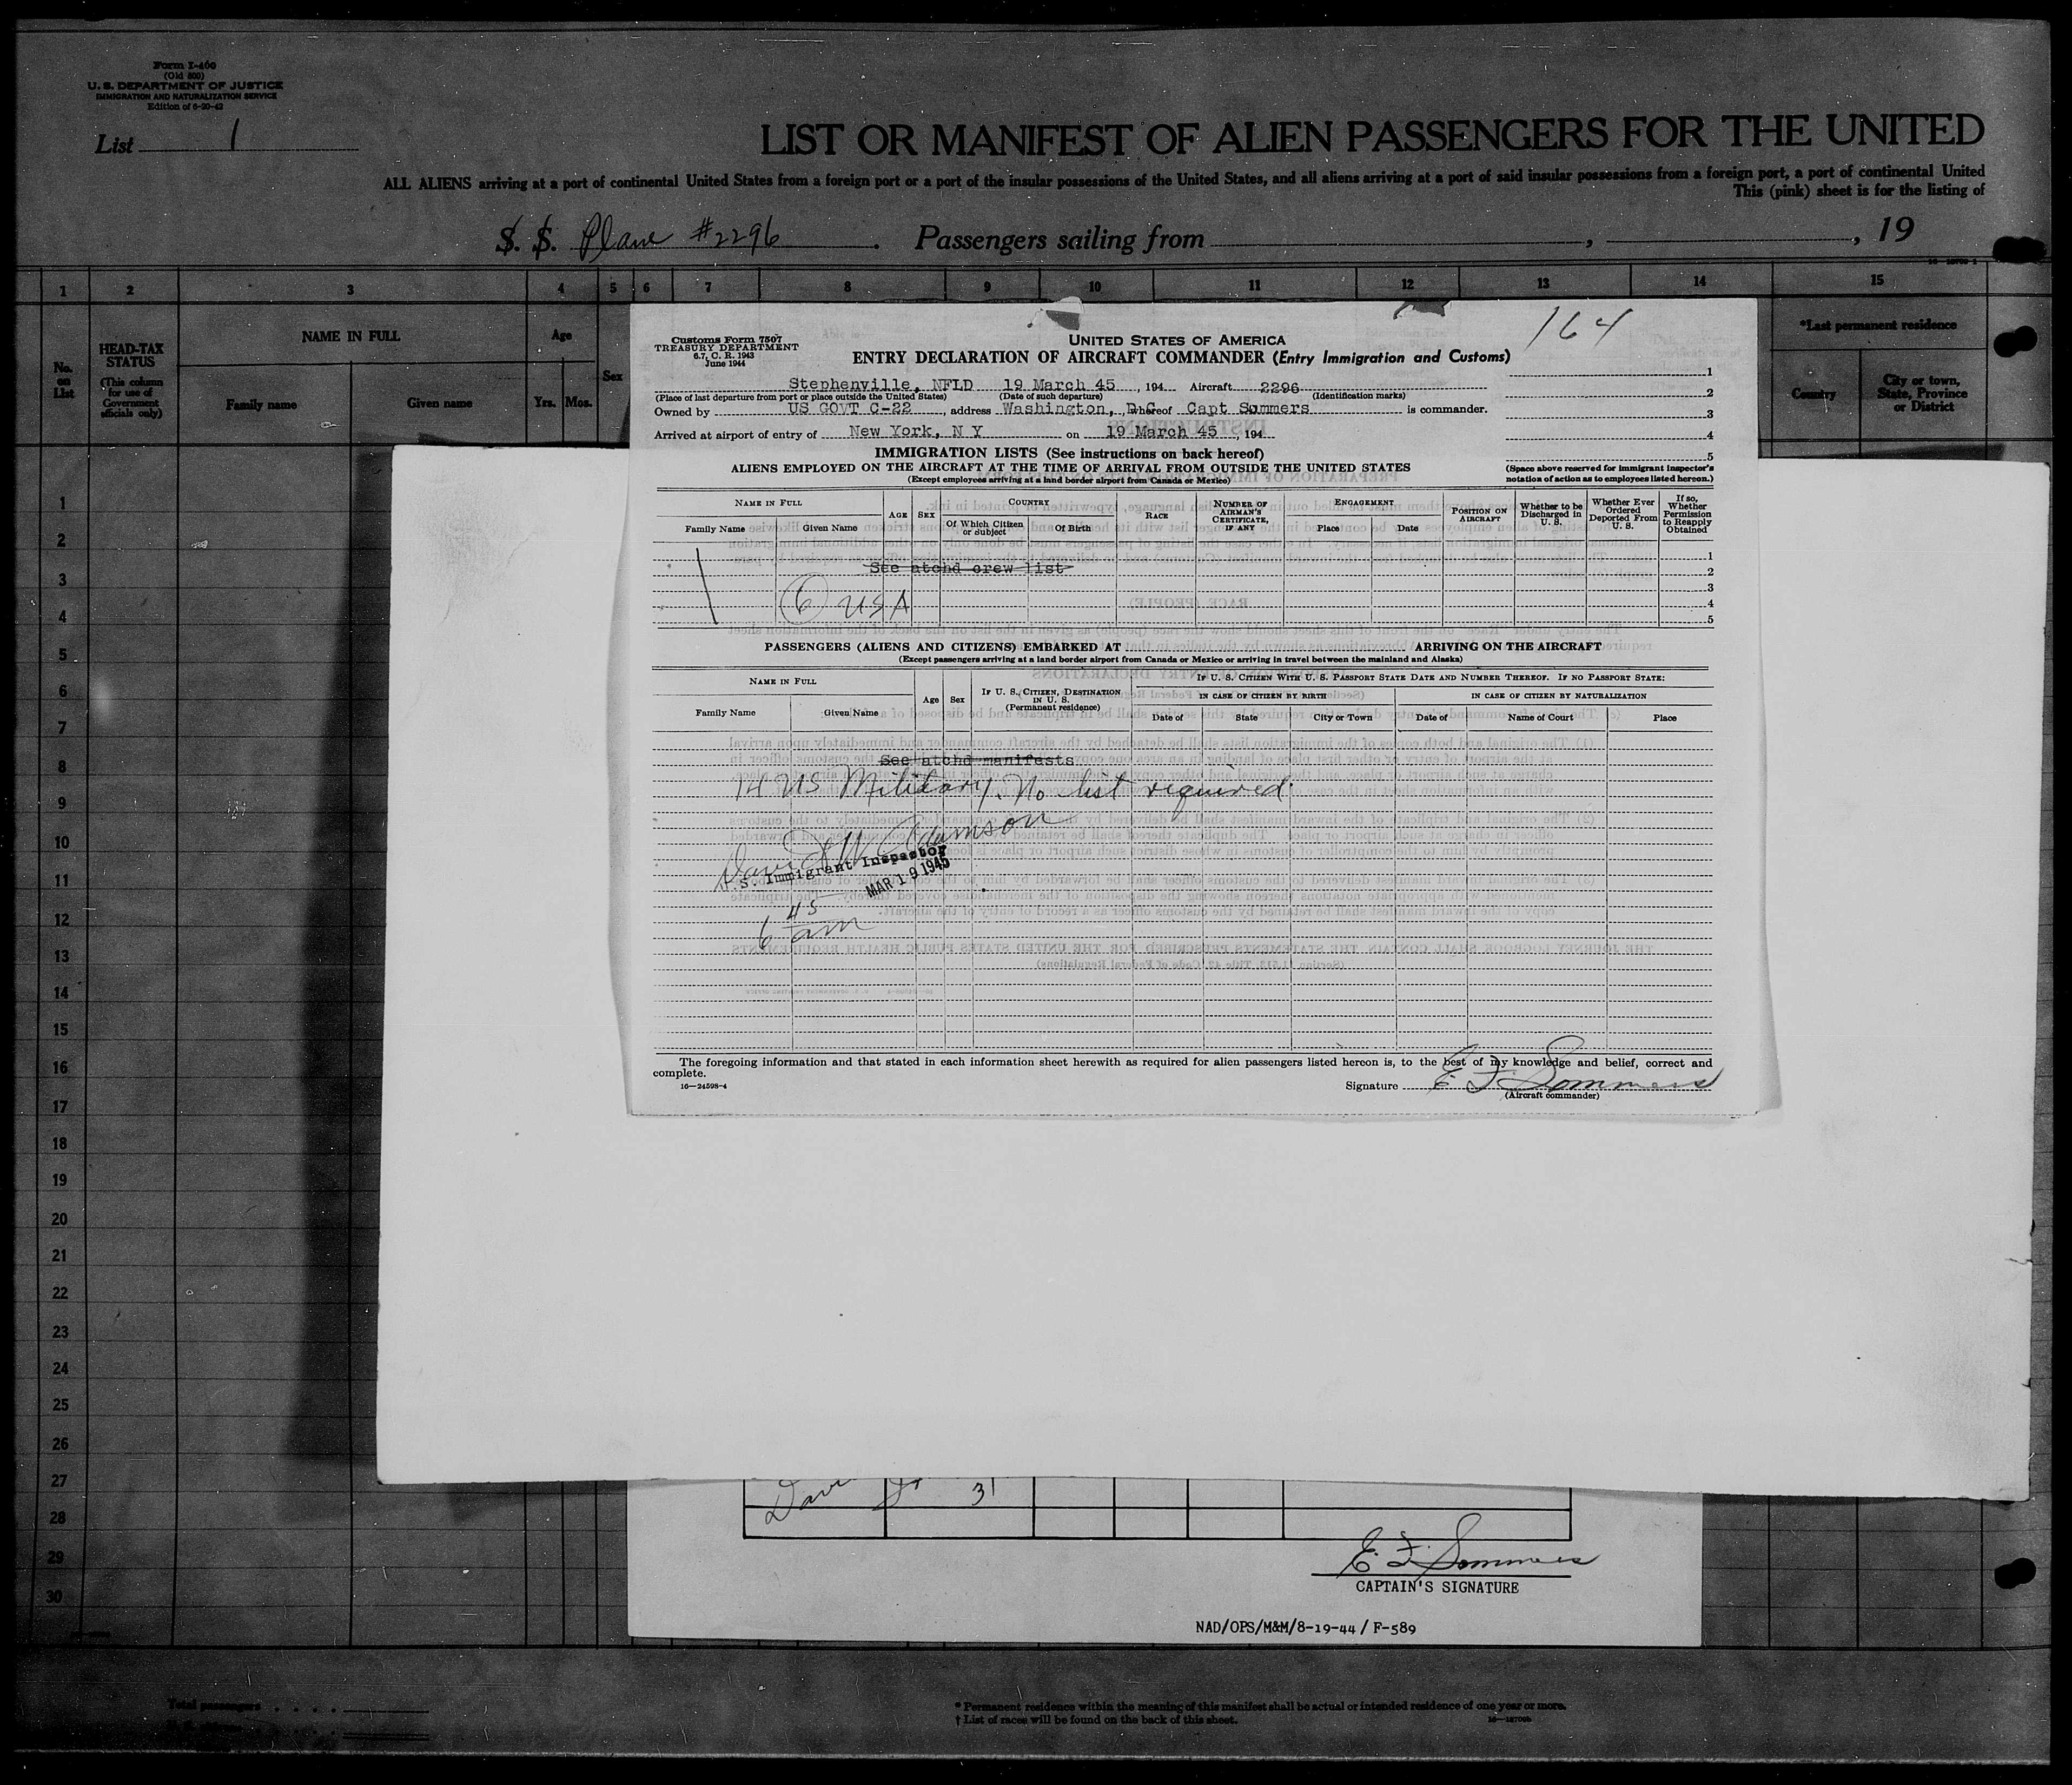 Form I-460
(Old 500)
U. S. DEPARTMENT OF JUSTICE
IMMIGRATION AND NATURALIZATION SERVICE
Edition of 6-20-42
List 1
LIST OR MANIFEST OF ALIEN PASSENGERS FOR THE UNITED
ALL ALIENS arriving at a port of continental United States from a foreign port or a port of the insular possessions of the United States, and all aliens arriving at a port of said insular possessions from a foreign port, a port of continental United
This (pink) sheet is for the listing of
S. S. Plane #2296 . Passengers sailing from , , 19
1 2 3 4 5 6 7 8 9 10 11 12 13 14 15
No. on List
HEAD-TAX STATUS
(This column for use of Government officials only)
NAME IN FULL
Family name Given name
Age
Yrs. Mos.
Sex
*Last permanent residence
Country City or town, State, Province or District
164
Customs Form 7507
TREASURY DEPARTMENT
6.7, C. R. 1943
June 1944
UNITED STATES OF AMERICA
ENTRY DECLARATION OF AIRCRAFT COMMANDER (Entry Immigration and Customs)
Stephenville, NFLD 19 March 45 , 194 Aircraft 2296
(Place of last departure from port or place outside the United States) (Date of such departure) (Identification marks)
Owned by US GOVT C-22 , address Washington, D C , whereof Capt Sommers is commander.
Arrived at airport of entry of New York, N Y on 19 March 45 , 194
1
2
3
4
5
IMMIGRATION LISTS (See instructions on back hereof)
ALIENS EMPLOYED ON THE AIRCRAFT AT THE TIME OF ARRIVAL FROM OUTSIDE THE UNITED STATES
(Except employees arriving at a land border airport from Canada or Mexico)
(Space above reserved for immigrant inspector's notation of action as to employees listed hereon.)
NAME IN FULL
Family Name Given Name
AGE SEX
COUNTRY
Of Which Citizen or Subject Of Birth
RACE
NUMBER OF AIRMAN'S CERTIFICATE, IF ANY
ENGAGEMENT
Place Date
POSITION ON AIRCRAFT
Whether to be Discharged in U. S.
Whether Ever Ordered Deported From U. S.
If so, Whether Permission to Reapply Obtained
See atchd crew list
6 USA
1
2
3
4
5
PASSENGERS (ALIENS AND CITIZENS) EMBARKED AT ARRIVING ON THE AIRCRAFT
(Except passengers arriving at a land border airport from Canada or Mexico or arriving in travel between the mainland and Alaska)
NAME IN FULL
Family Name Given Name
Age Sex
IF U. S. CITIZEN, DESTINATION IN U. S.
(Permanent residence)
IF U. S. CITIZEN WITH U. S. PASSPORT STATE DATE AND NUMBER THEREOF. IF NO PASSPORT STATE:
IN CASE OF CITIZEN BY BIRTH IN CASE OF CITIZEN BY NATURALIZATION
Date of State City or Town Date of Name of Court Place
See atchd manifests
14 US Military. No list required.
David W Adamson
S. Immigrant Inspector
MAR 19 1945
6 45 am
The foregoing information and that stated in each information sheet herewith as required for alien passengers listed hereon is, to the best of my knowledge and belief, correct and
complete.
16—24598-4
Signature E F Sommers
(Aircraft commander)
1
2
3
4
5
6
7
8
9
10
11
12
13
14
15
16
17
18
19
20
21
22
23
24
25
26
27
28
29
30
31
E. F. Sommers
CAPTAIN'S SIGNATURE
NAD/OPS/M&M/8-19-44 / F-589
Total passengers
* Permanent residence within the meaning of this manifest shall be actual or intended residence of one year or more.
† List of races will be found on the back of this sheet.